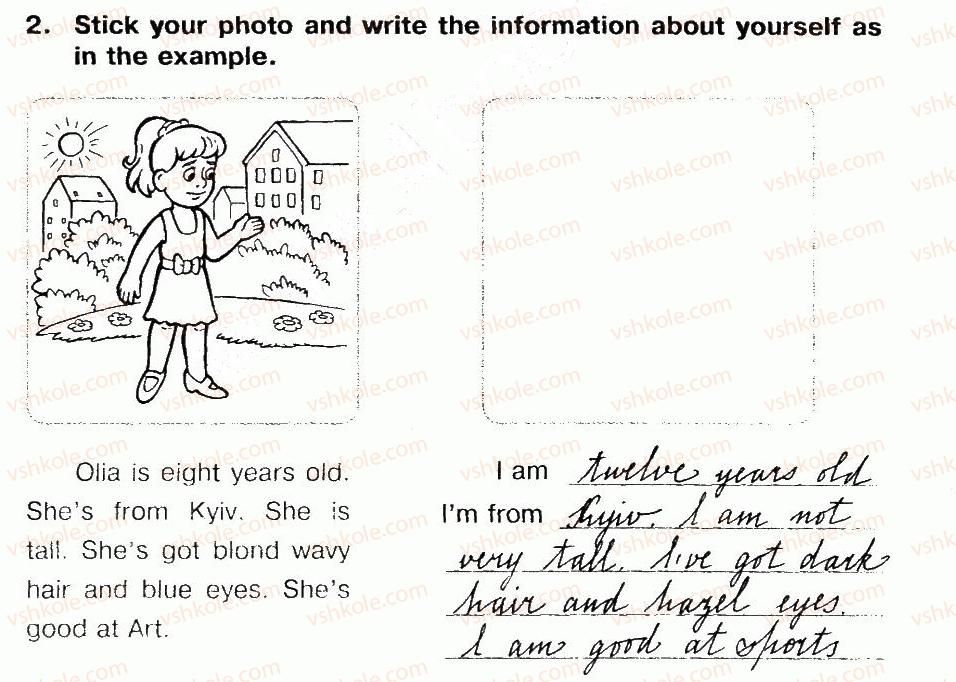 2. Stick your photo and write the information about yourself as
in the example.
Olia is eight years old.
She's from Kyiv. She is
tall. She's got blond wavy
hair and blue eyes. She's
good at Art.
I am twelve years old
I'm from Kyiv. I am not
very tall. I've got dark
hair and hazel eyes.
I am good at sports
vshkole.com